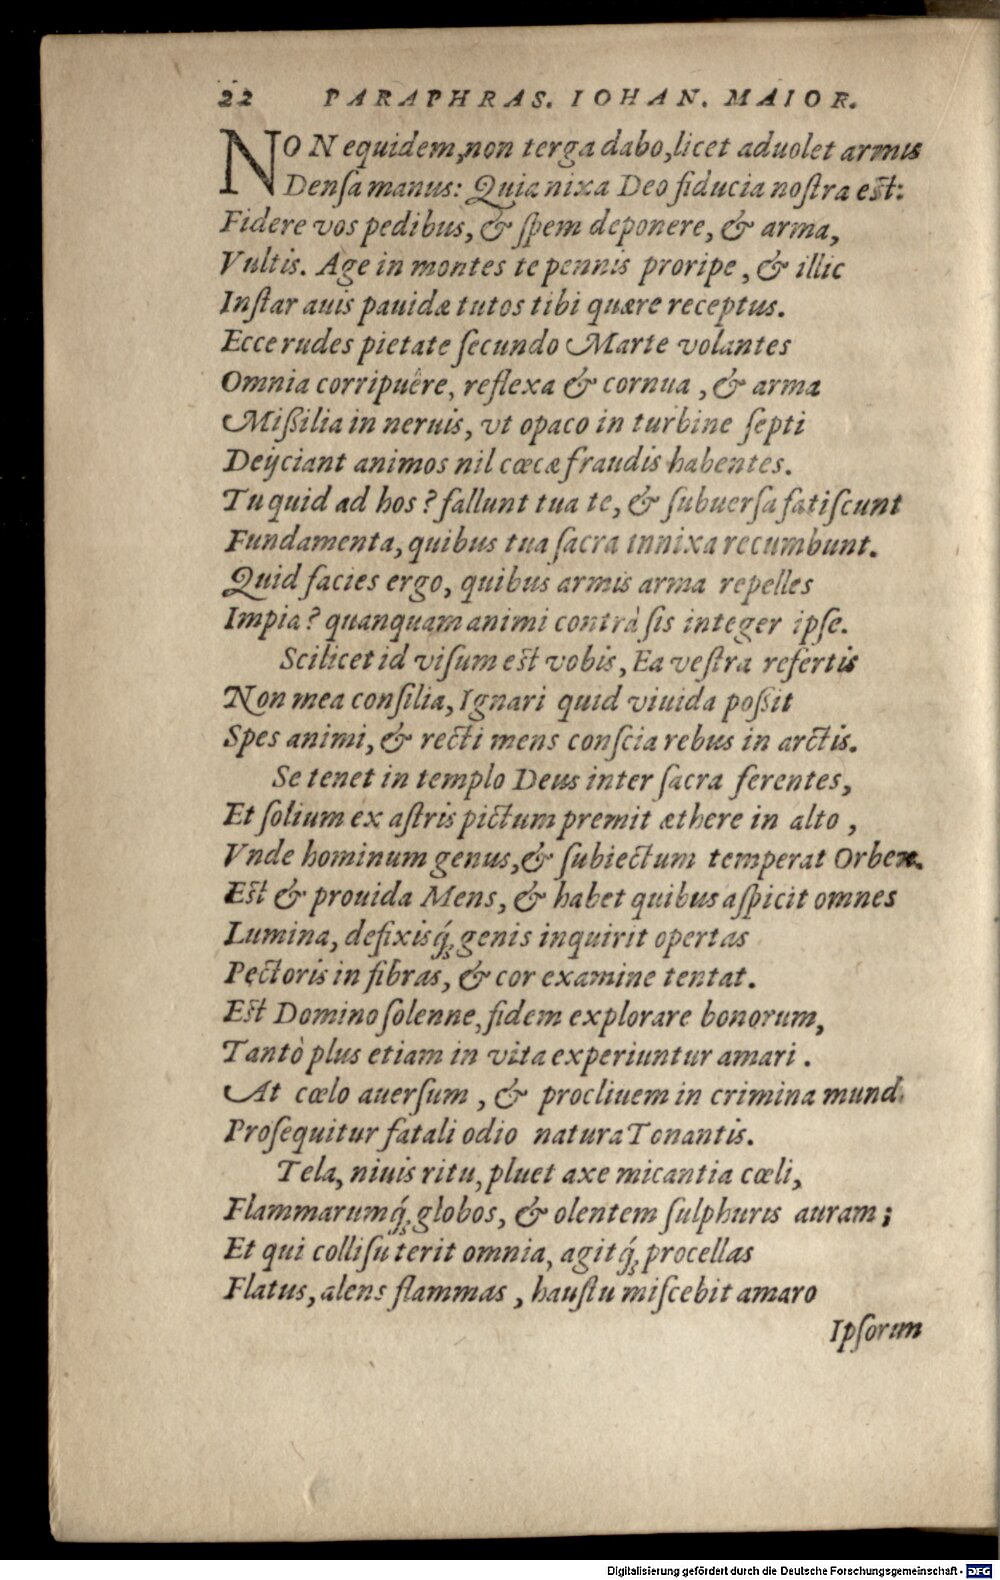 22 PARAPHRAS. IOHAN. MAIOR.
NON equidem, non terga dabo, licet aduolet armis
Denſa manus: Quia nixa Deo fiducia noſtra eſt:
Fidere vos pedibus, & ſpem deponere, & arma,
Vultis. Age in montes te pennis proripe, & illic
Inſtar auis pauidæ tutos tibi quære receptus.
Ecce rudes pietate ſecundo Marte volantes
Omnia corripuêre, reflexa & cornua, & arma
Mißilia in neruis, vt opaco in turbine ſepti
Deijciant animos nil cæcæ fraudis habentes.
Tu quid ad hos? fallunt tua te, & ſubuerſa fatiſcunt
Fundamenta, quibus tua ſacra innixa recumbunt.
Quid facies ergo, quibus armis arma repelles
Impia? quanquam animi contrà ſis integer ipſe.
Scilicet id viſum eſt vobis, Ea veſtra refertis
Non mea conſilia, Ignari quid viuida poßit
Spes animi, & recti mens conſcia rebus in arctis.
Se tenet in templo Deus inter ſacra ferentes,
Et ſolium ex aſtris pictum premit æthere in alto,
Vnde hominum genus, & ſubiectum temperat Orbem.
Eſt & prouida Mens, & habet quibus aſpicit omnes
Lumina, defixisq́; genis inquirit opertas
Pectoris in fibras, & cor examine tentat.
Eſt Domino ſolenne, fidem explorare bonorum,
Tantò plus etiam in vita experiuntur amari.
At cœlo auerſum, & procliuem in crimina mund
Proſequitur fatali odio natura Tonantis.
Tela, niuis ritu, pluet axe micantia cœli,
Flammarumq́; globos, & olentem ſulphuris auram;
Et qui colliſu terit omnia, agitq́; procellas
Flatus, alens flammas, hauſtu miſcebit amaro
Ipſorum
Digitalisierung gefördert durch die Deutsche Forschungsgemeinschaft - DFG